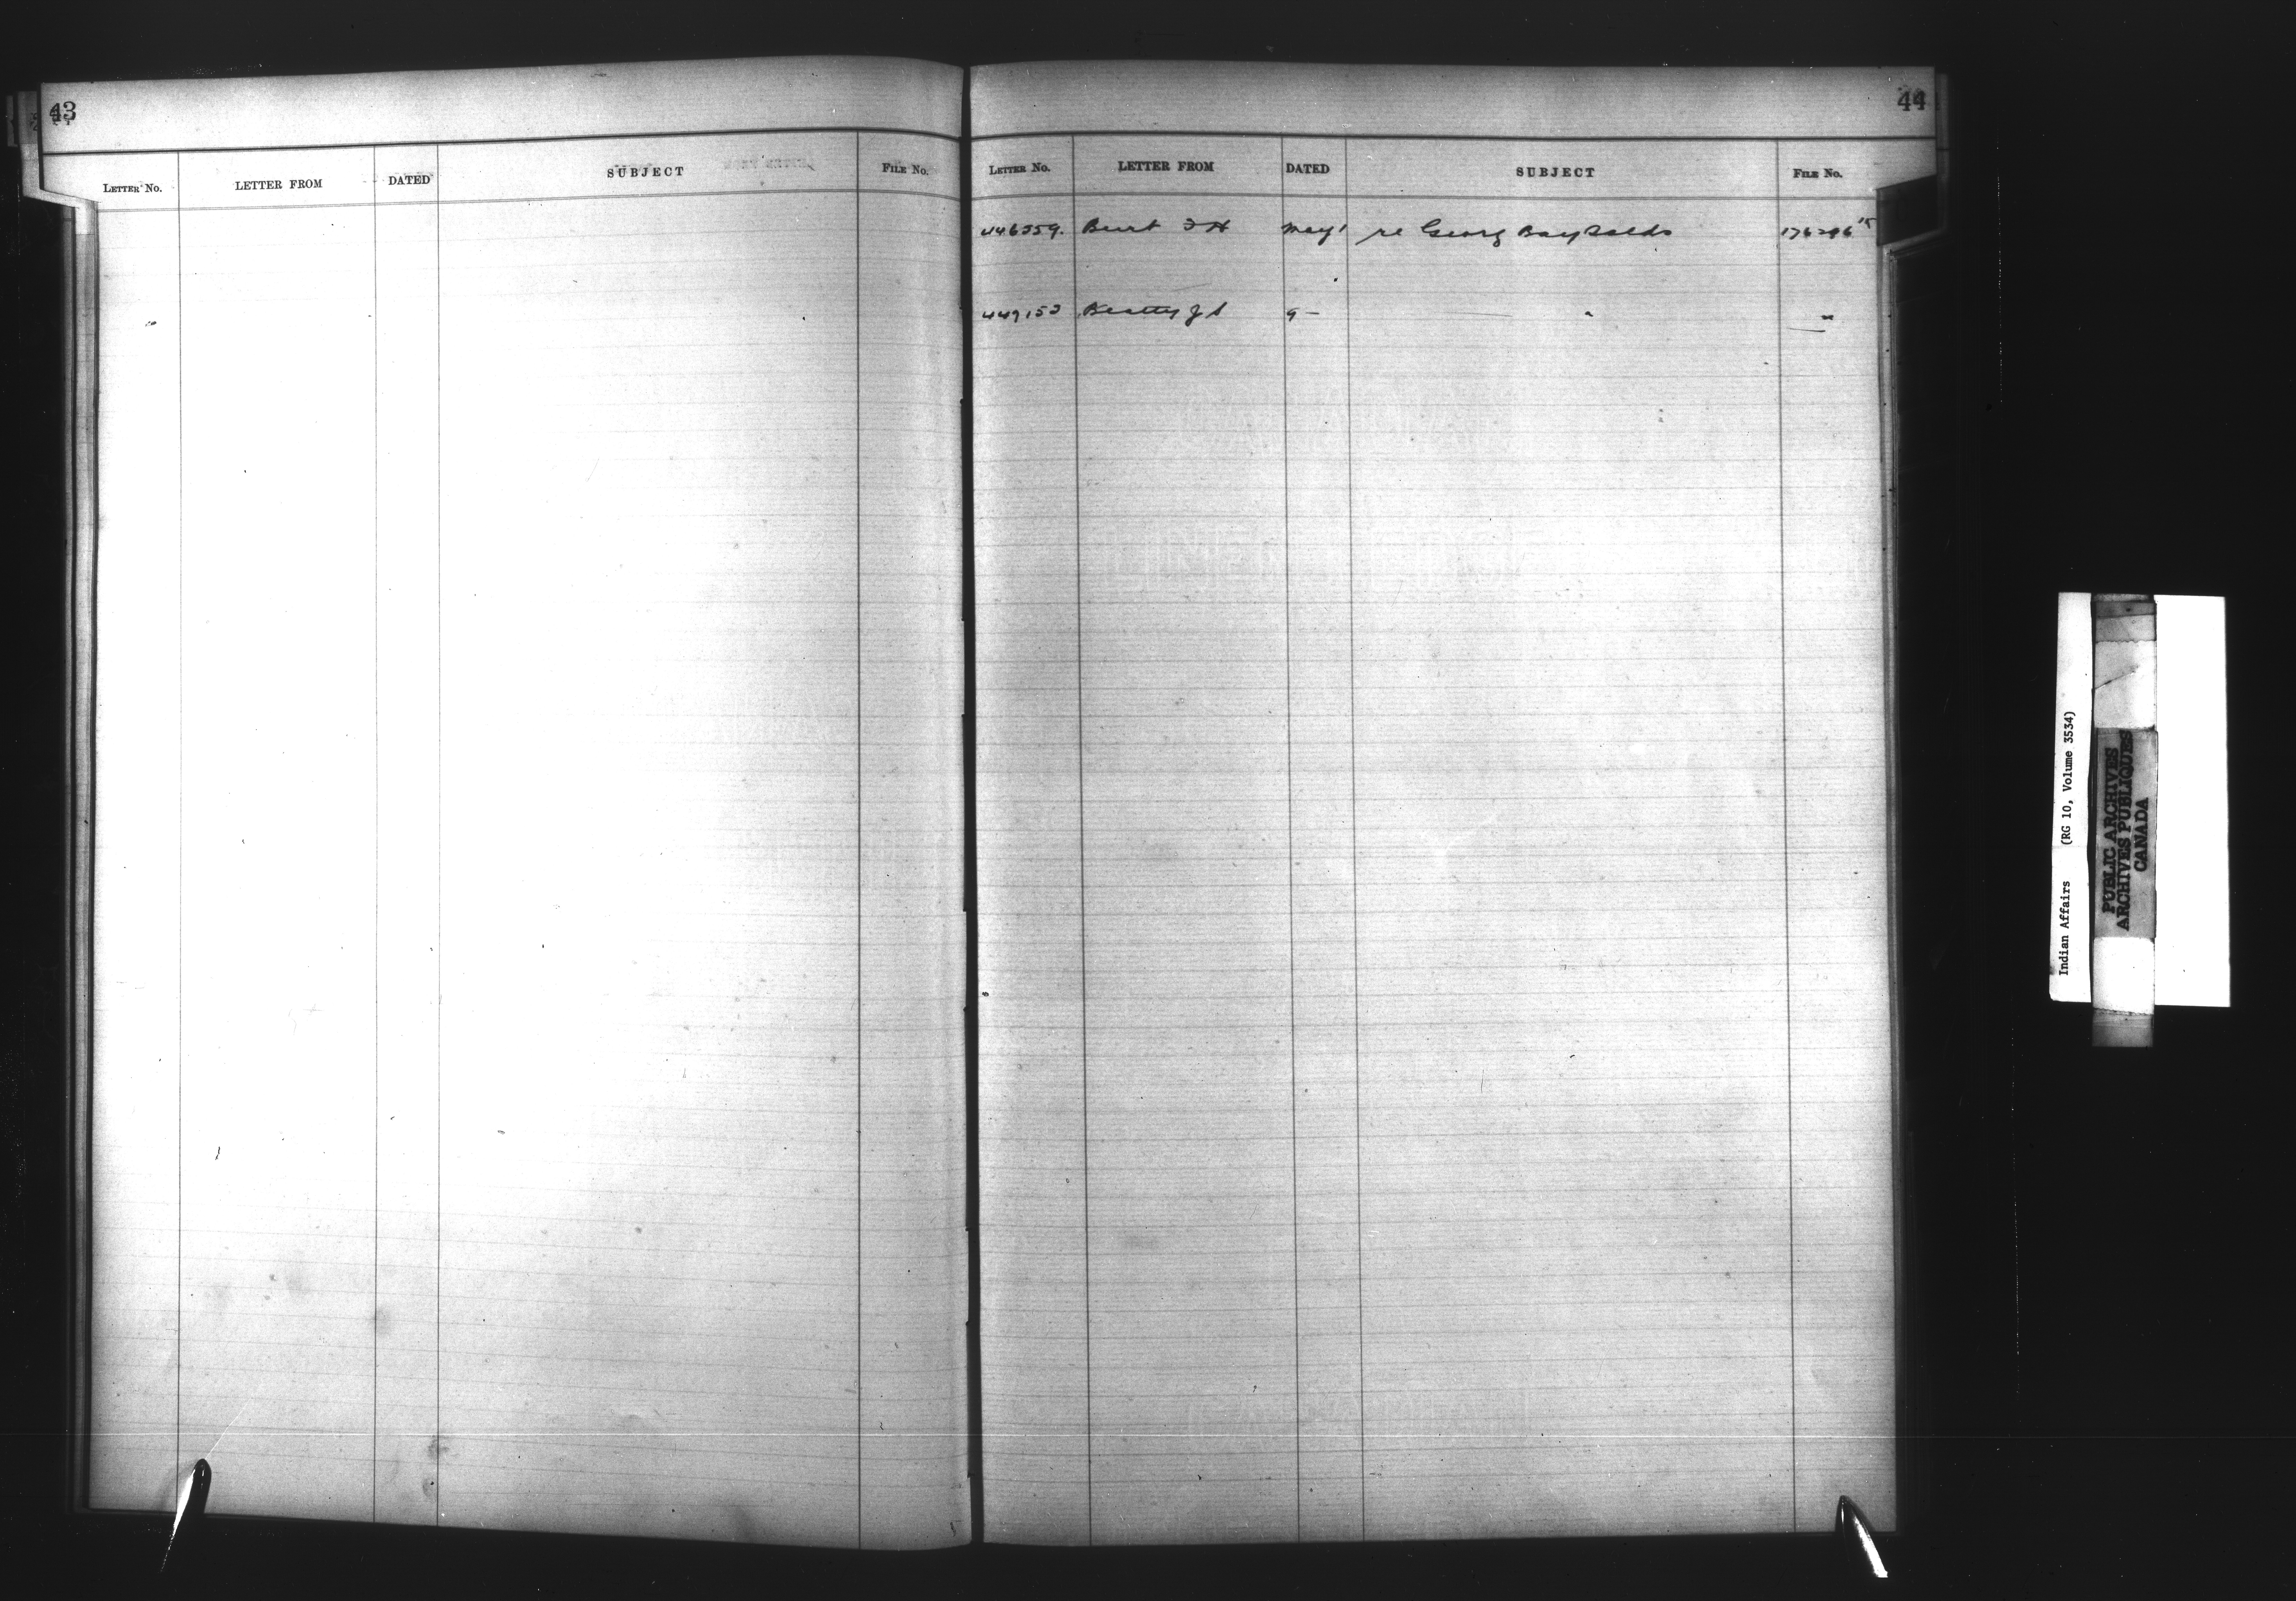 43
LETTER NO. LETTER FROM DATED SUBJECT FILE NO.
44
LETTER NO. LETTER FROM DATED SUBJECT FILE NO.
446359. Burt F H May 1 re Georg Bay 176296
449153 Beatty J 9 — "
Indian Affairs (RG 10, Volume 3534)
PUBLIC ARCHIVES
ARCHIVES PUBLIQUES
CANADA